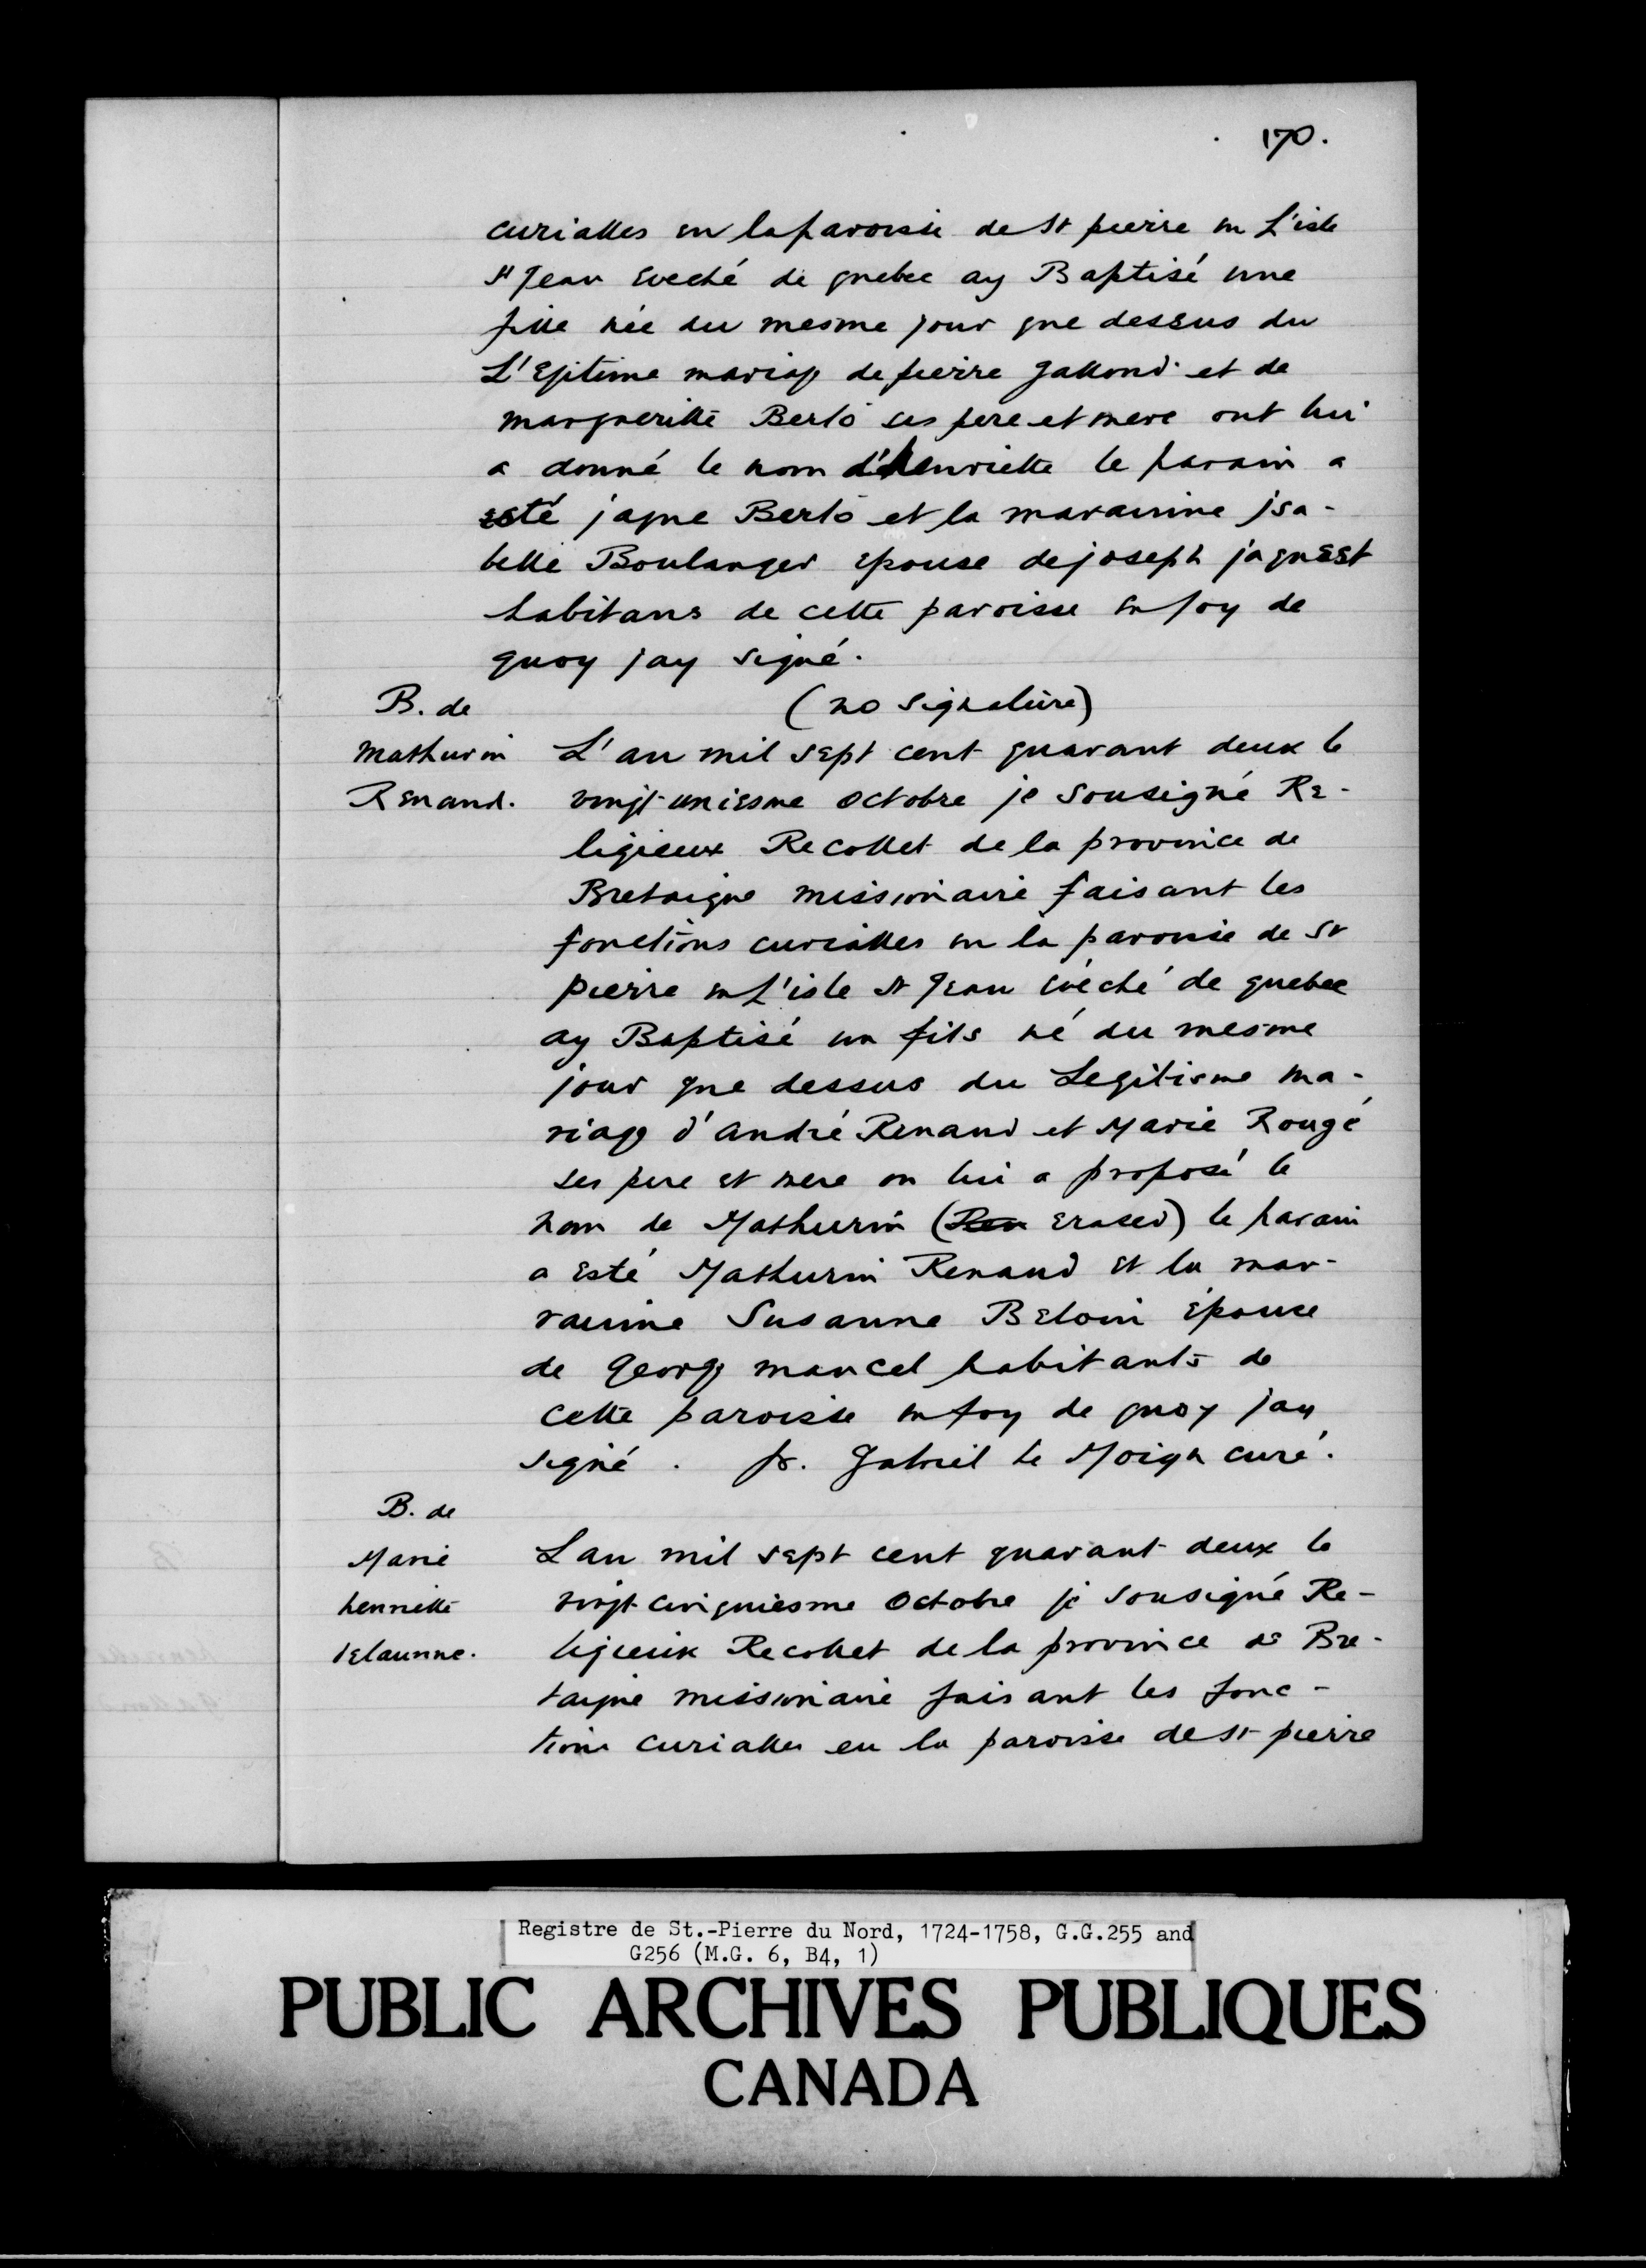 170.
curialles en la paroisse de St pierre en L'isle
St Jean Eveché de quebec ay Baptisé une
fille née du mesme jour que dessus du
L'Egitime mariage de pierre Gallond et de
margueritte Berlo ses pere et mere ont lui
a donné le nom d'henriette le parain a
esté jaque Berlo et la marainne jsa-
belle Boulanger Epouse de joseph jaquest
habitans de cette paroisse en foy de
quoy jay signé.
(no signature)
B. de
Mathurin
Renaud.
L'an mil sept cent quarant deux le
vingt-uniesme octobre je Sousigné Re-
ligieux Recollet de la province de
Bretaigne missionaire faisant les
fonctions curialles en la paroisse de St
pierre en L'isle St Jean Evéché de quebec
ay Baptisé un fils né du mesme
jour que dessus du Legitisme ma-
riage d'andré Renaud et Marie Rougé
ses pere et mere on lui a proposé le
nom de Mathurin (Ren erased) le parain
a esté Mathurin Renaud et la mar-
rainne Susanne Beloin épouse
de George mancel habitants de
cette paroisse en foy de quoy jay
signé. fr. Gabriel le Moign curé.
B. de
Marie
henriette
delaunne.
Lan mil sept cent quarant deux le
vingt cinquiesme Octobre je Sousigné Re-
ligieux Recollet de la province de Bre-
taigne missionaire faisant les fonc-
tions curialles en la paroisse de St pierre
Registre de St.-Pierre du Nord, 1724-1758, G.G.255 and
G256 (M.G. 6, B4, 1)
PUBLIC ARCHIVES PUBLIQUES
CANADA